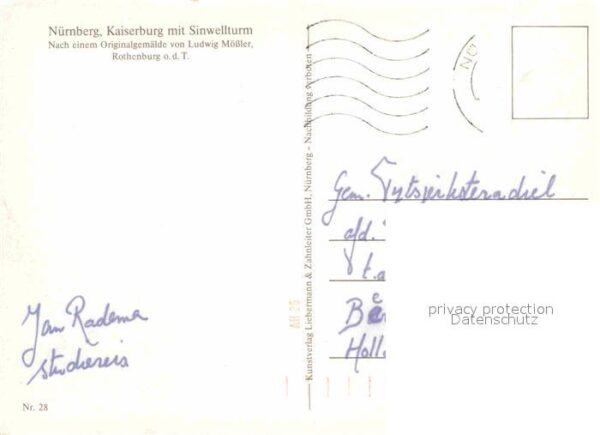 Nürnberg, Kaiserburg mit Sinwellturm
Nach einem Originalgemälde von Ludwig Mößler,
Rothenburg o. d. T.
Kunstverlag Liebermann & Zahnleiter GmbH, Nürnberg - Nachbildung verboten
NO
Gem.
afd.
t.a
Holl
privacy protection
Datenschutz
Jan Radema
studiereis
Nr. 28